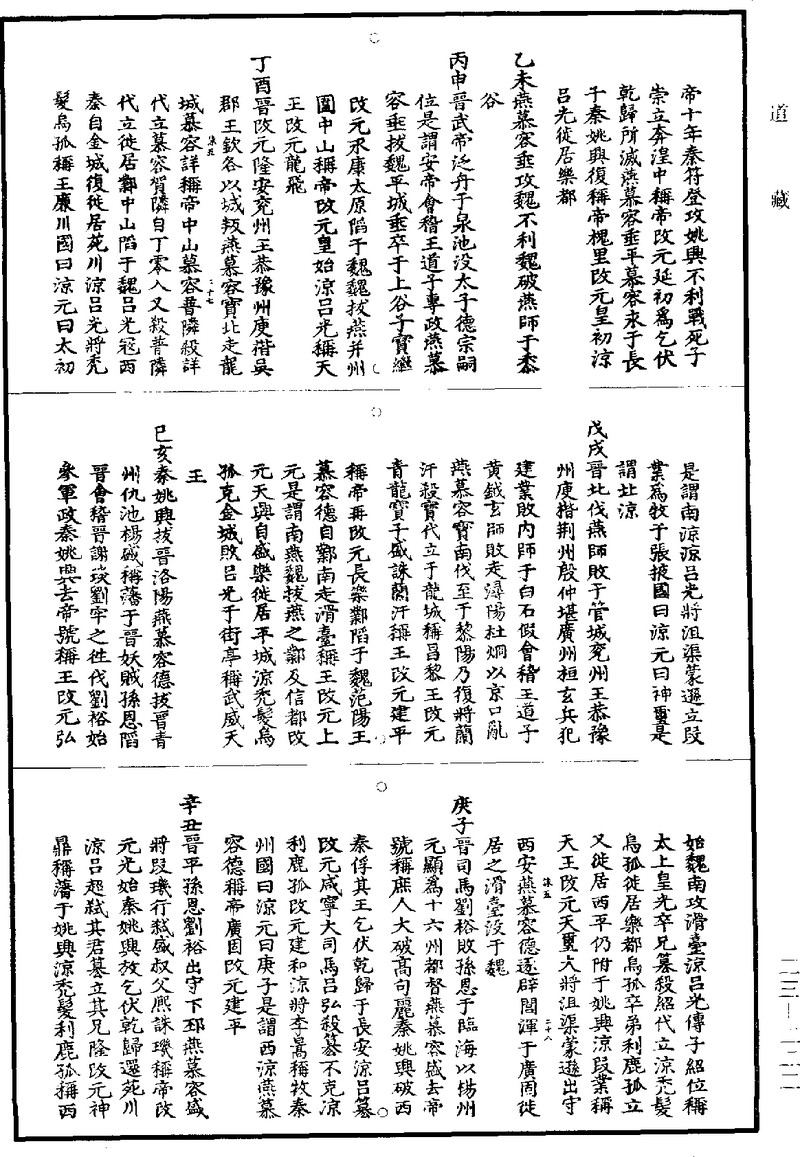 道藏
帝十年秦符登攻姚興不利戰死子
崇立奔湟中稱帝改元延初爲乞伏
乾歸所滅燕慕容垂平慕容永于長
子秦姚興復稱帝槐里改元皇初涼
呂光徙居樂都
乙未燕慕容垂攻魏不利魏破燕師于黍
谷
丙申晉武帝泛舟于泉池没太子德宗嗣
位是謂安帝會稽王道子專政燕慕
容垂拔魏平城垂卒于上谷子寶繼
改元永康太原陷于魏魏拔燕并州
圍中山稱帝改元皇始涼呂光稱天
王改元龍飛
丁酉晉改元隆安兖州王恭豫州庾楷吳
郡王欽各以城叛燕慕容寶北走龍
城慕容詳稱帝中山慕容普隣殺詳
代立慕容賀隣自丁零入又殺普隣
代立徙居鄴中山陷于魏呂光寇西
秦自金城復徙居苑川涼呂光將禿
髮烏孤稱王廉川國曰涼元曰太初
是謂南涼涼呂光將沮渠蒙遜立段
業爲牧于張掖國曰涼元曰神璽是
謂北涼
戊戌晉北伐燕師敗于管城兖州王恭豫
州庾楷荆州殷仲堪廣州桓玄兵犯
建業敗内師于白石假會稽王道子
黄鉞玄師敗走潯陽杜炯以京口亂
燕慕容寶南伐至于黎陽乃復將蘭
汗殺寶代立于龍城稱昌黎王改元
青龍寶子盛誅蘭汗稱王改元建平
稱帝再改元長樂鄴陷于魏范陽王
慕容德自鄴南走滑臺稱王改元上
元是謂南燕魏拔燕之鄴及信都改
元天興自盛樂徙居平城涼禿髮烏
孤克金城敗呂光于街亭稱武威天
王
己亥秦姚興拔晉洛陽燕慕容德拔晉青
州仇池楊盛稱藩于晉妖賊孫恩陷
晉會稽晉謝琰劉牢之往伐劉裕始
參軍政秦姚興去帝號稱王改元弘
始魏南攻滑臺涼呂光傳子紹位稱
太上皇光卒兄篡殺紹代立涼禿髮
烏孤徙居樂都烏孤卒弟利鹿孤立
又徙居西平仍附于姚興涼段業稱
天王改元天璽大將沮渠蒙遜出守
西安燕慕容德逐辟閭渾于廣固徙
居之滑臺没于魏
庚子晉司馬劉裕敗孫恩于臨海以楊州
元顯爲十六州都督燕慕容盛去帝
號稱庶人大破高句麗秦姚興破西
秦俘其王乞伏乾歸于長安涼呂篡
改元咸寧大司馬呂弘殺篡不克涼
利鹿孤改元建和涼將李暠稱牧秦
州國曰涼元曰庚子是謂西涼燕慕
容德稱帝廣固改元建平
辛丑晉平孫恩劉裕出守下邳燕慕容盛
將段璣行弑盛叔父熙誅璣稱帝改
元光始秦姚興放乞伏乾歸還苑川
涼呂超弑其君篡立其兄隆改元神
鼎稱藩于姚興涼禿髮利鹿孤稱西